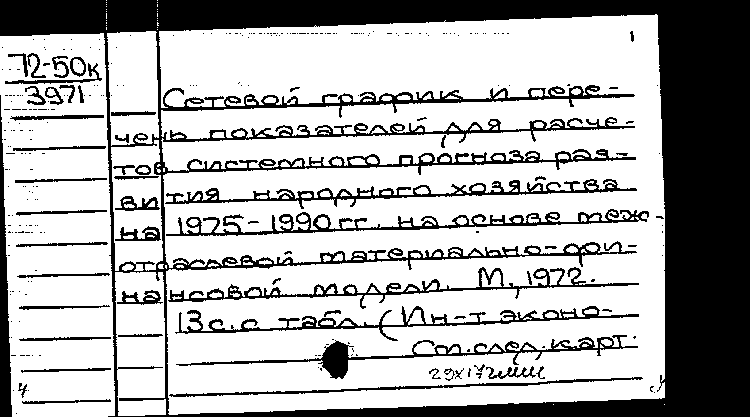 1
72-50к
3971
Сетевой график и пере-
чень показателей для расче-
тов системного прогноза раз-
вития народного хозяйства
на 1975-1990 гг. на основе меж-
отраслевой материально-фи-
нансовой модели. М., 1972.
13 с. с табл. (Ин-т эконо-
См. след. карт.
29х172мм
4